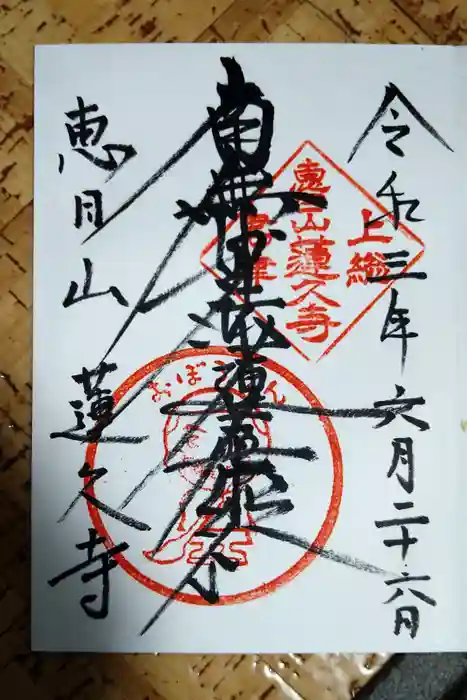 令和三年六月二十六日
南無妙法蓮華経
恵日山蓮久寺
上総
恵日山蓮久寺
津